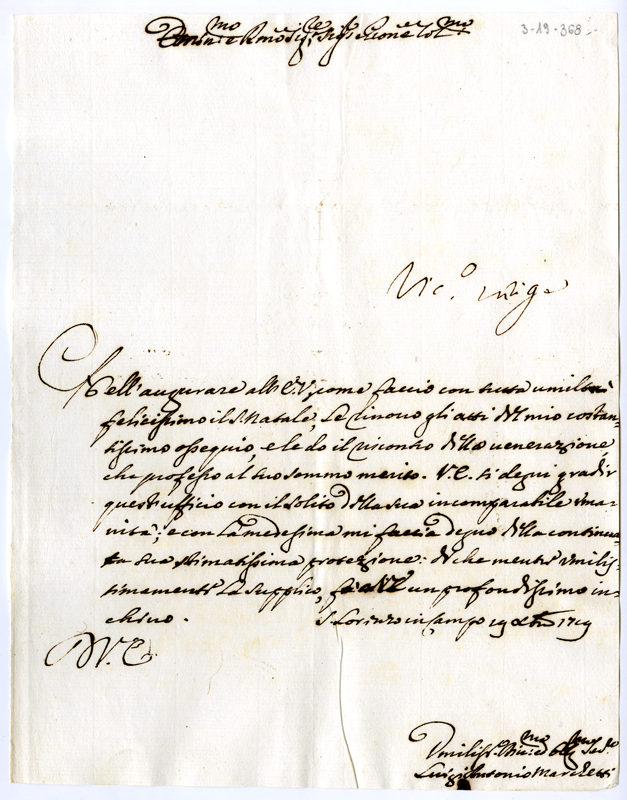 3-19-368
Nell'augurare all'E.V. come faccio con tutta umiltà
felicissimo il S. Natale, Le rinovo gli atti del mio costan-
tissimo ossequio, e le do il riscontro della venerazione,
che professo al suo sommo merito. V.E. si degni gradir
quest'ufficio con il solito della sua incomparabile Uma-
nità; e con la medesima mi faccia degno della continua-
ta sua stimatissima protezione: di che mentre umilis-
simamente La supplico, fo a V.E. un profondissimo in-
chino. S. Lorenzo in Campo 19 Xbre 1719
D V.E.
Umiliss.mo Div.mo ed Obb.mo Ser.re
Luigi Antonio Marchetti